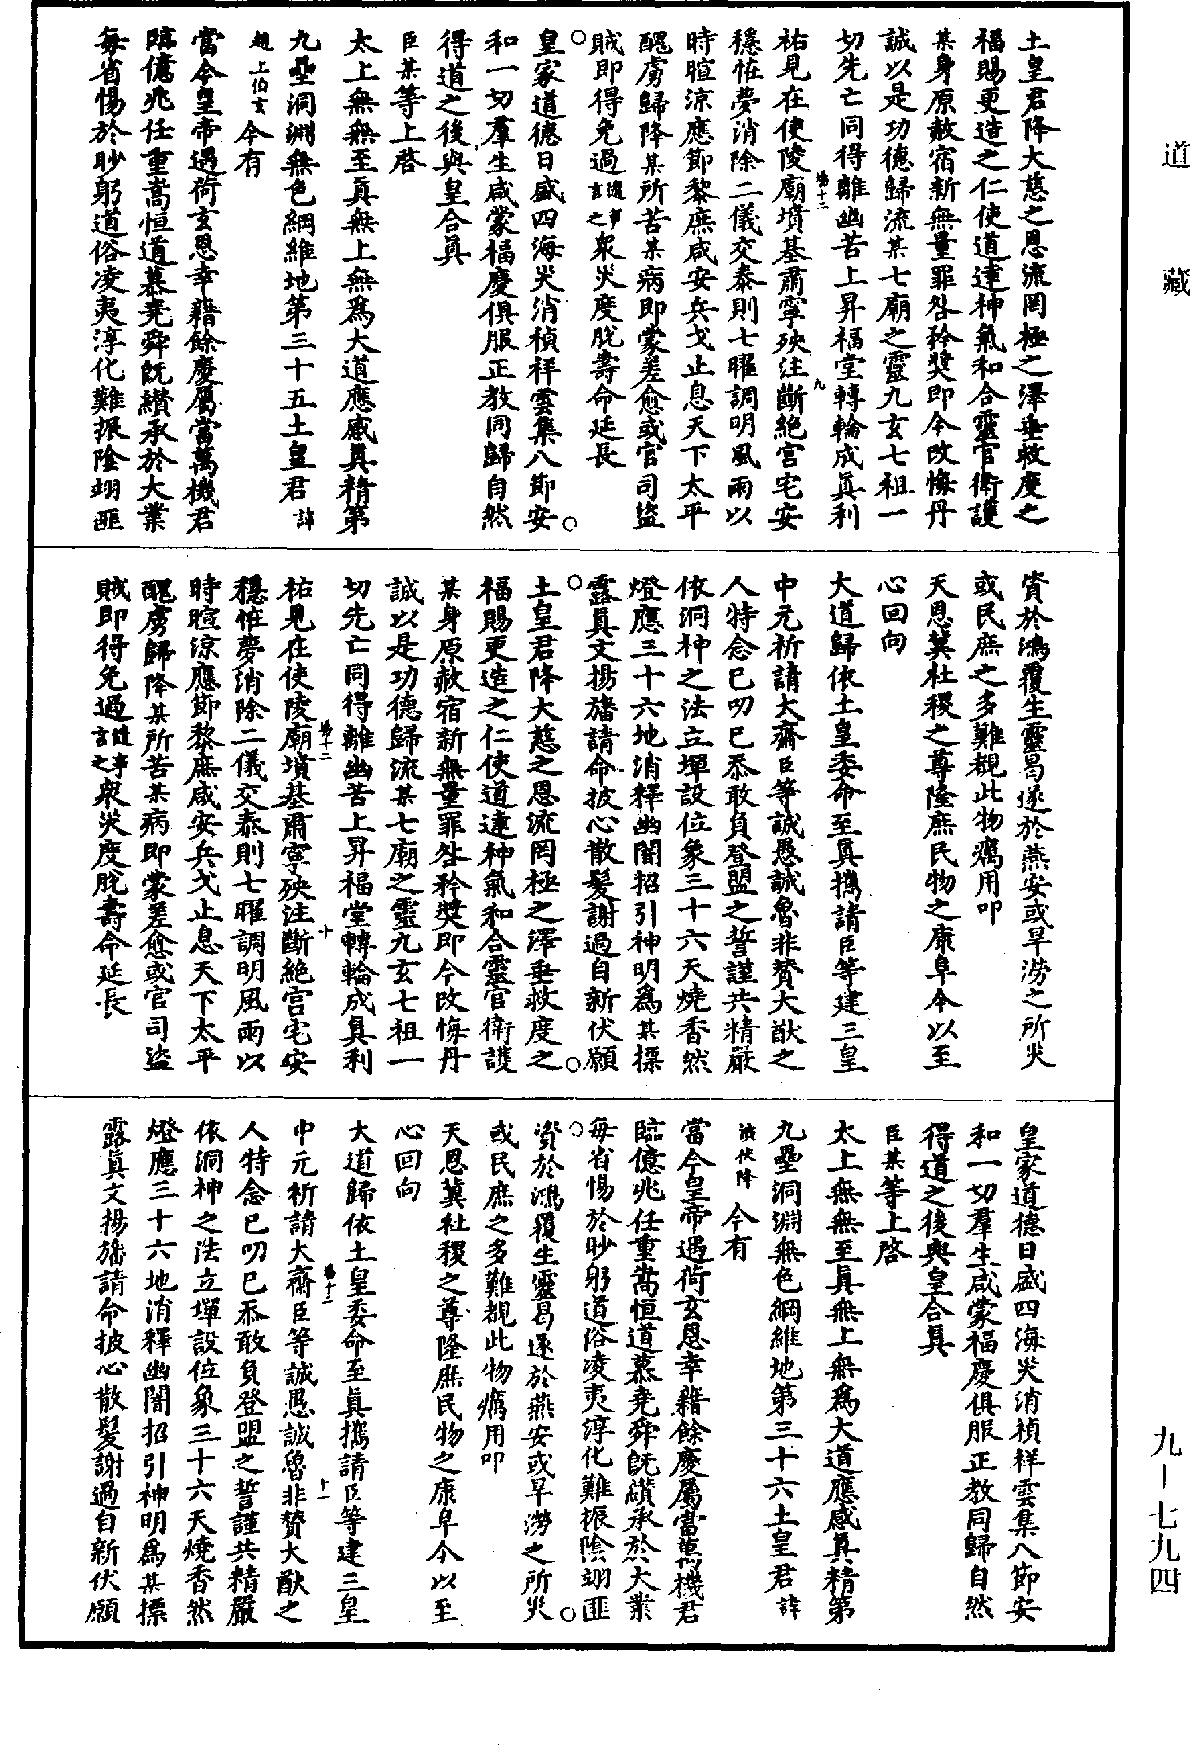 道藏
土皇君降大慈之恩流罔極之澤垂救度之
福賜更造之仁使道達神氣和合靈官衛護
某身原赦宿新無量罪咎矜獎即今改悔丹
誠以是功德歸流某七廟之靈九玄七祖一
切先亡同得離幽苦上昇福堂轉輪成真利
祐見在使陵廟墳基肅寧殃注斷絕宮宅安
穩怪夢消除二儀交泰則七曜調明風雨以
時暄涼應節黎庶咸安兵戈止息天下太平
醜虜歸降某所苦某病即蒙差愈或官司盜
賊即得免過隨事言之衆災度脫壽命延長
皇家道德日盛四海災消禎祥雲集八節安
和一切羣生咸蒙福慶俱服正教同歸自然
得道之後與皇合真
臣某等上啓
太上無無至真無上無爲大道應感真精第
九壘洞淵無色綱維地第三十五土皇君諱
趙上伯玄今有
當今皇帝遇荷玄恩幸藉餘慶屬當萬機君
臨億兆任重嵩恒道慕堯舜既纘承於大業
每省惕於眇躬道俗凌夷淳化難振陰翊匪
資於鴻覆生靈曷遂於燕安或旱澇之所災
或民庶之多難覩此物癘用叩
天恩冀社稷之尊隆庶民物之康阜今以至
心回向
大道歸依土皇委命至真擕請臣等建三皇
中元祈請大齋臣等誠愚誠魯非贊大猷之
人特念已叨已忝敢負登盟之誓謹共精嚴
依洞神之法立墠設位象三十六天燒香然
燈應三十六地消釋幽闇招引神明爲其摽
露真文揚旛請命披心散髮謝過自新伏願
土皇君降大慈之恩流罔極之澤垂救度之
福賜更造之仁使道達神氣和合靈官衛護
某身原赦宿新無量罪咎矜獎即今改悔丹
誠以是功德歸流某七廟之靈九玄七祖一
切先亡同得離幽苦上昇福堂轉輪成真利
祐見在使陵廟墳基肅寧殃注斷絕宮宅安
穩怪夢消除二儀交泰則七曜調明風雨以
時暄涼應節黎庶咸安兵戈止息天下太平
醜虜歸降某所苦某病即蒙差愈或官司盜
賊即得免過隨事言之衆災度脫壽命延長
皇家道德日盛四海災消禎祥雲集八節安
和一切羣生咸蒙福慶俱服正教同歸自然
得道之後與皇合真
臣某等上啓
太上無無至真無上無爲大道應感真精第
九壘洞淵無色綱維地第三十六土皇君諱
伏降今有
當今皇帝遇荷玄恩幸藉餘慶屬當萬機君
臨億兆任重嵩恒道慕堯舜既纘承於大業
每省惕於眇躬道俗凌夷淳化難振陰翊匪
資於鴻覆生靈曷遂於燕安或旱澇之所災
或民庶之多難覩此物癘用叩
天恩冀社稷之尊隆庶民物之康阜今以至
心回向
大道歸依土皇委命至真擕請臣等建三皇
中元祈請大齋臣等誠愚誠魯非贊大猷之
人特念已叨已忝敢負登盟之誓謹共精嚴
依洞神之法立墠設位象三十六天燒香然
燈應三十六地消釋幽闇招引神明爲其摽
露真文揚旛請命披心散髮謝過自新伏願
九－七九四